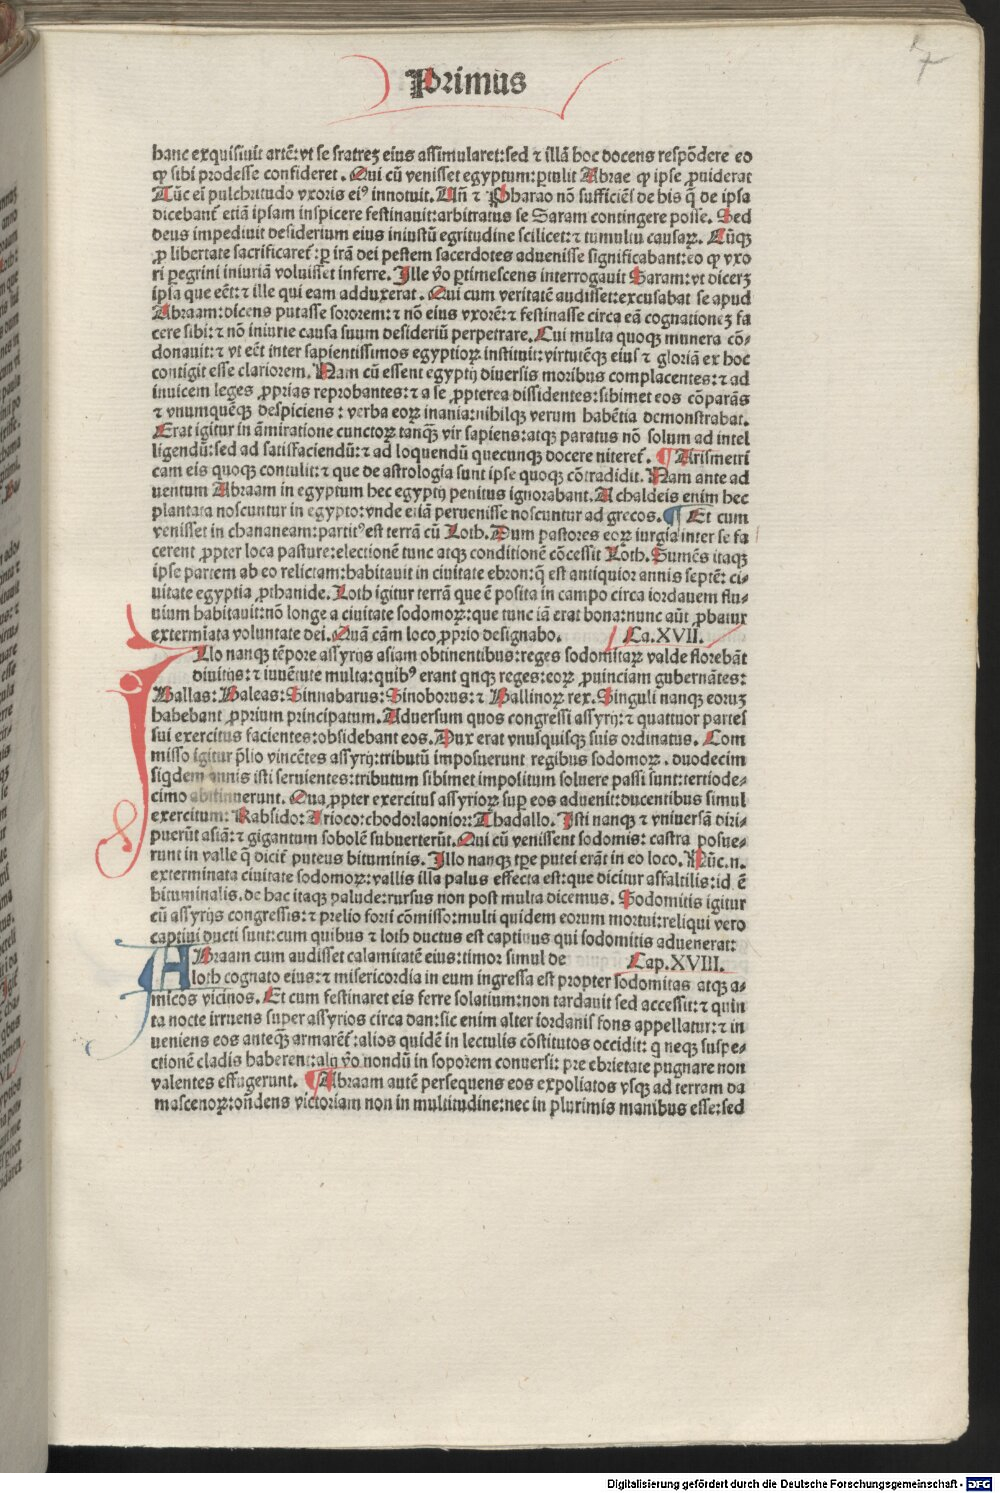 7
Primus
hanc exquisiuit artē: vt se fratrēz eius assimularet: sed ⁊ illā hoc docens respōdere eo
qꝙ sibi prodesse confideret. Qui cū venisset egyptum: ꝑtulit Abrae ꝙ ipse ꝓuiderat
Tūc eī pulchritudo vxoris eiꝰ innotuit. Vñ ⁊ Pharao nō sufficiēs de his q̄ de ipsa
dicebant̄ etiā ipsam inspicere festinauit: arbitratus se Saram contingere posse. Sed
deus impediuit desiderium eius iniustū egritudine scilicet: ⁊ tumultu causaꝝ. Cūqꝫ
ꝓ libertate sacrificaret̄: ꝑ irā dei pestem sacerdotes aduenisse significabant: eo ꝙ vxo
ri ꝑegrini iniuriā voluisset inferre. Ille ṽo ꝑtimescens interrogauit Saram: vt dicerꝫ
ipsa que eēt: ⁊ ille qui eam adduxerat. Qui cum veritatē audisset: excusabat se apud
Abraam: dicens putasse sororem: ⁊ nō eius vxorē: ⁊ festinasse circa eā cognationeꝫ fa
cere sibi: ⁊ nō iniurie causa suum desideriū perpetrare. Cui multa quoqꝫ munera cō-
donauit: ⁊ vt eēt inter sapientissimos egyptioꝝ instituit: virtutēqꝫ eius ⁊ gloriā ex hoc
contigit esse clariorem. Nam cū essent egyptij diuersis moribus complacentes: ⁊ ad
inuicem leges ꝓprias reprobantes: ⁊ a se ꝓpterea dissidentes: sibimet eos cōparās
⁊ vnumquēqꝫ despiciens: verba eoꝝ inania: nihilqꝫ verum habētia demonstrabat.
Erat igitur in āmiratione cunctoꝝ tanqꝫ̄ vir sapiens: atqꝫ paratus nō solum ad intel
ligendū: sed ad satisfaciendū: ⁊ ad loquendū quecunqꝫ docere niteret̄. ¶ Arismetri
cam eis quoqꝫ contulit: ⁊ que de astrologia sunt ipse quoqꝫ cōtradidit. Nam ante ad
uentum Abraam in egyptum hec egyptij penitus ignorabant. A chaldeis enim hec
plantata noscuntur in egypto: vnde etiā peruenisse noscuntur ad grecos. ¶ Et cum
venisset in chananeam: partitꝰ est terrā cū Loth. Dum pastores eoꝝ iurgia inter se fa
cerent ꝓpter loca pasture: electionē tunc atqꝫ conditionē cōcessit Loth. Sumēs itaqꝫ
ipse partem ab eo relictam: habitauit in ciuitate ebron: q̄ est antiquior annis septē: ci-
uitate egyptia ꝓthanide. Loth igitur terrā que ē posita in campo circa iordanem flu-
uium habitauit: nō longe a ciuitate sodomoꝝ: que tunc iā erat bona: nunc aūt ꝓbatur
extermīata voluntate dei. Quā cām loco ꝓprio designabo. Ca. XVII.
Illo nanqꝫ tēpore assyrijs asiam obtinentibus: reges sodomitaꝝ valde florebāt
diuitijs: ⁊ iuuētute multa: quibꝰ erant qnqꝫ reges: eoꝝ ꝓuinciam gubernātes:
Ballas: Baleas: Sinnabarus: Sinoborus: ⁊ Ballinoꝝ rex. Singuli nanqꝫ eoruꝫ
habebant ꝓprium principatum. Aduersum quos congressi assyrij: ⁊ quattuor partes
sui exercitus facientes: obsidebant eos. Dux erat vnusquisqꝫ suis ordinatus. Com
misso igitur p̄lio vincētes assyrij: tributū imposuerunt regibus sodomoꝝ. duodecim
siqdem annis isti seruientes: tributum sibimet impositum soluere passi sunt: tertiode-
cimo abstinuerunt. Qua ꝓpter exercitus assyrioꝝ suꝑ eos aduenit: ducentibus simul
exercitum: Rabsido: Arioco: chodorlaonior: Thadallo. Isti nanqꝫ ⁊ vniuersā diri-
puerūt asiā: ⁊ gigantum sobolē subuerterūt. Qui cū venissent sodomis: castra posue-
runt in valle q̄ dicit̄ puteus bituminis. Illo nanqꝫ tꝑe putei erāt in eo loco. Nūc. n.
exterminata ciuitate sodomoꝝ: vallis illa palus effecta est: que dicitur asfaltilis: id ē
bituminalis. de hac itaqꝫ palude: rursus non post multa dicemus. Sodomitis igitur
cū assyrijs congressis: ⁊ prelio forti cōmisso: multi quidem eorum mortui: reliqui vero
captiui ducti sunt: cum quibus ⁊ loth ductus est captiuus qui sodomitis aduenerat:
ABraam cum audisset calamitatē eius: timor simul de Cap. XVIII.
loth cognato eius: ⁊ misericordia in eum ingressa est propter sodomitas atqꝫ a-
micos vicinos. Et cum festinaret eis ferre solatium: non tardauit sed accessit: ⁊ quin
ta nocte irruens super assyrios circa dan: sic enim alter iordanis fons appellatur: ⁊ in
ueniens eos anteqꝫ̄ armarēt̄: alios quidē in lectulis cōstitutos occidit: q neqꝫ suspe-
ctionē cladis haberent: alij ṽo nondū in soporem conuersi: pre ebrietate pugnare non
valentes effugerunt. ¶ Abraam autē persequens eos expoliatos vsqꝫ ad terram da
mascenoꝝ: on̄dens victoriam non in multitudine: nec in plurimis manibus esse: sed
Digitalisierung gefördert durch die Deutsche Forschungsgemeinschaft - DFG